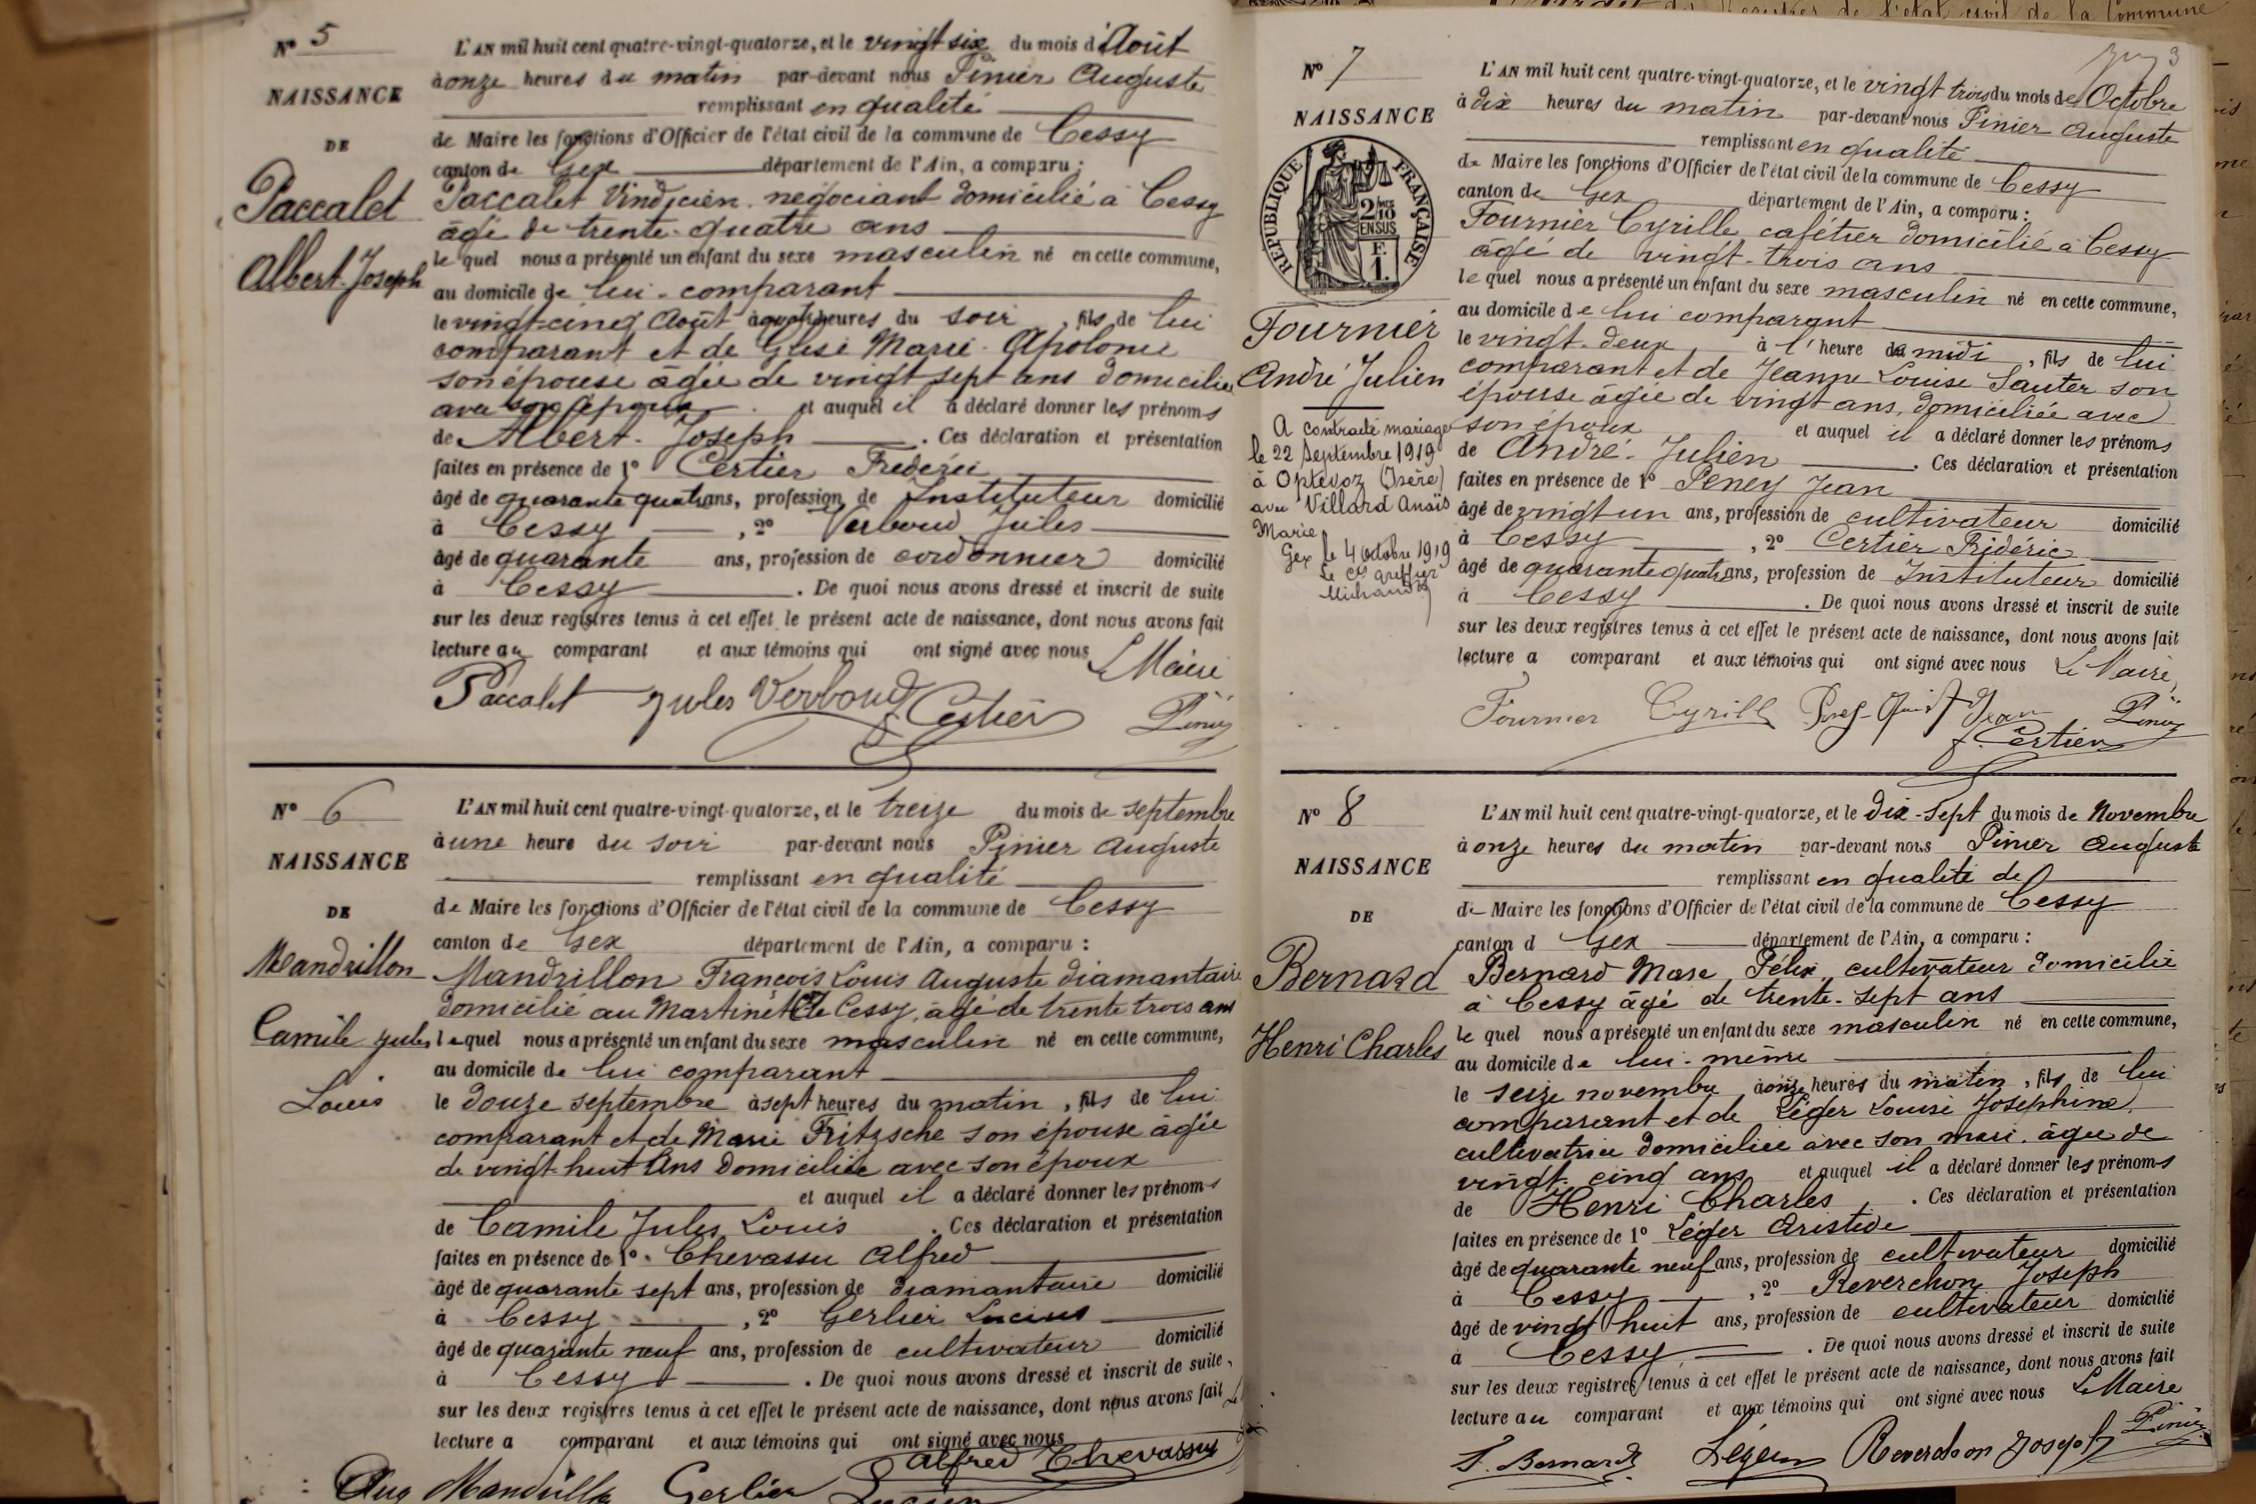 N° 5
NAISSANCE
DE
Paccalet
Albert-Joseph
L'AN mil huit cent quatre-vingt-quatorze, et le vingt six du mois d'Août
à onze heures du matin par-devant nous Pinier Auguste
remplissant en qualité
de Maire les fonctions d'Officier de l'état civil de la commune de Cessy
canton de Gex département de l'Ain, a comparu :
Paccalet Vindicien négociant domicilié à Cessy
âgé de trente-quatre ans
le quel nous a présenté un enfant du sexe masculin né en cette commune,
au domicile de lui-comparant
le vingt-cinq Août à quatre heures du soir, fils de lui
comparant et de Marie-Apolonie
son épouse âgée de vingt sept ans domiciliée
avec son époux et auquel il a déclaré donner les prénoms
de Albert-Joseph. Ces déclaration et présentation
faites en présence de 1° Certier Frédéric
âgé de quarante quatre ans, profession de Instituteur domicilié
à Cessy, 2° Verboud Jules
âgé de quarante ans, profession de cordonnier domicilié
à Cessy. De quoi nous avons dressé et inscrit de suite
sur les deux registres tenus à cet effet le présent acte de naissance, dont nous avons fait
lecture au comparant et aux témoins qui ont signé avec nous
Le Maire
Paccalet Jules Verboud F. Certier Pinier
N° 6
NAISSANCE
DE
Mandrillon
Camile Jules
Louis
L'AN mil huit cent quatre-vingt-quatorze, et le treize du mois de septembre
à une heure du soir par-devant nous Pinier Auguste
remplissant en qualité
de Maire les fonctions d'Officier de l'état civil de la commune de Cessy
canton de Gex département de l'Ain, a comparu :
Mandrillon François Louis Auguste diamantaire
domicilié au Martinet de Cessy, âgé de trente trois ans
lequel nous a présenté un enfant du sexe masculin né en cette commune,
au domicile de lui comparant
le douze septembre à sept heures du matin, fils de lui
comparant et de Marie Fritzsche son épouse âgée
de vingt-huit ans domiciliée avec son époux
et auquel il a déclaré donner les prénoms
de Camile Jules Louis. Ces déclaration et présentation
faites en présence de 1° Chevassu Alfred
âgé de quarante sept ans, profession de diamantaire domicilié
à Cessy, 2° Gerlier Lucien
âgé de quarante neuf ans, profession de cultivateur domicilié
à Cessy. De quoi nous avons dressé et inscrit de suite,
sur les deux registres tenus à cet effet le présent acte de naissance, dont nous avons fait
lecture a comparant et aux témoins qui ont signé avec nous
Alfred Chevassu
Aug Mandrillon Gerlier Lucien
3
N° 7
NAISSANCE
RÉPUBLIQUE FRANÇAISE
2/10 EN SUS
F.
1.
Fournier
André Julien
A contracté mariage
le 22 Septembre 1919
à Optevoz (Isère)
avec Villard Anaïs
Marie
Gex le 4 octobre 1919
Le Cis greffier
L'AN mil huit cent quatre-vingt-quatorze, et le vingt trois du mois de Octobre
à dix heures du matin par-devant nous Pinier Auguste
remplissant en qualité
de Maire les fonctions d'Officier de l'état civil de la commune de Cessy
canton de Gex département de l'Ain, a comparu :
Fournier Cyrille cafétier domicilié à Cessy
âgé de vingt-trois ans
le quel nous a présenté un enfant du sexe masculin né en cette commune,
au domicile de lui comparant
le vingt-deux à l'heure de midi, fils de lui
comparant et de Jeanne Louise Sauter son
épouse âgée de vingt ans, domiciliée avec
son époux et auquel il a déclaré donner les prénoms
de André-Julien. Ces déclaration et présentation
faites en présence de 1° Peney Jean
âgé de vingt un ans, profession de cultivateur domicilié
à Cessy, 2° Certier Frédéric
âgé de quarante quatre ans, profession de Instituteur domicilié
à Cessy. De quoi nous avons dressé et inscrit de suite
sur les deux registres tenus à cet effet le présent acte de naissance, dont nous avons fait
lecture a comparant et aux témoins qui ont signé avec nous Le Maire,
Fournier Cyrille Jean Pinier
F. Certier
N° 8
NAISSANCE
DE
Bernard
Henri Charles
L'AN mil huit cent quatre-vingt-quatorze, et le dix-sept du mois de Novembre
à onze heures du matin par-devant nous Pinier Auguste
remplissant en qualité de
de Maire les fonctions d'Officier de l'état civil de la commune de Cessy
canton d Gex département de l'Ain, a comparu :
Bernard Marc Félix cultivateur domicilié
à Cessy âgé de trente-sept ans
le quel nous a présenté un enfant du sexe masculin né en cette commune,
au domicile de lui-même
le seize novembre à onze heures du matin, fils de lui
comparant et de Léger Louise Joséphine
cultivatrice domiciliée avec son mari, âgée de
vingt-cinq ans et auquel il a déclaré donner les prénoms
de Henri Charles. Ces déclaration et présentation
faites en présence de 1° Léger Aristide
âgé de quarante neuf ans, profession de cultivateur domicilié
à Cessy, 2° Reverchon Joseph
âgé de vingt huit ans, profession de cultivateur domicilié
à Cessy. De quoi nous avons dressé et inscrit de suite
sur les deux registres tenus à cet effet le présent acte de naissance, dont nous avons fait
lecture au comparant et aux témoins qui ont signé avec nous Le Maire
Bernard Léger Reverchon Joseph Pinier